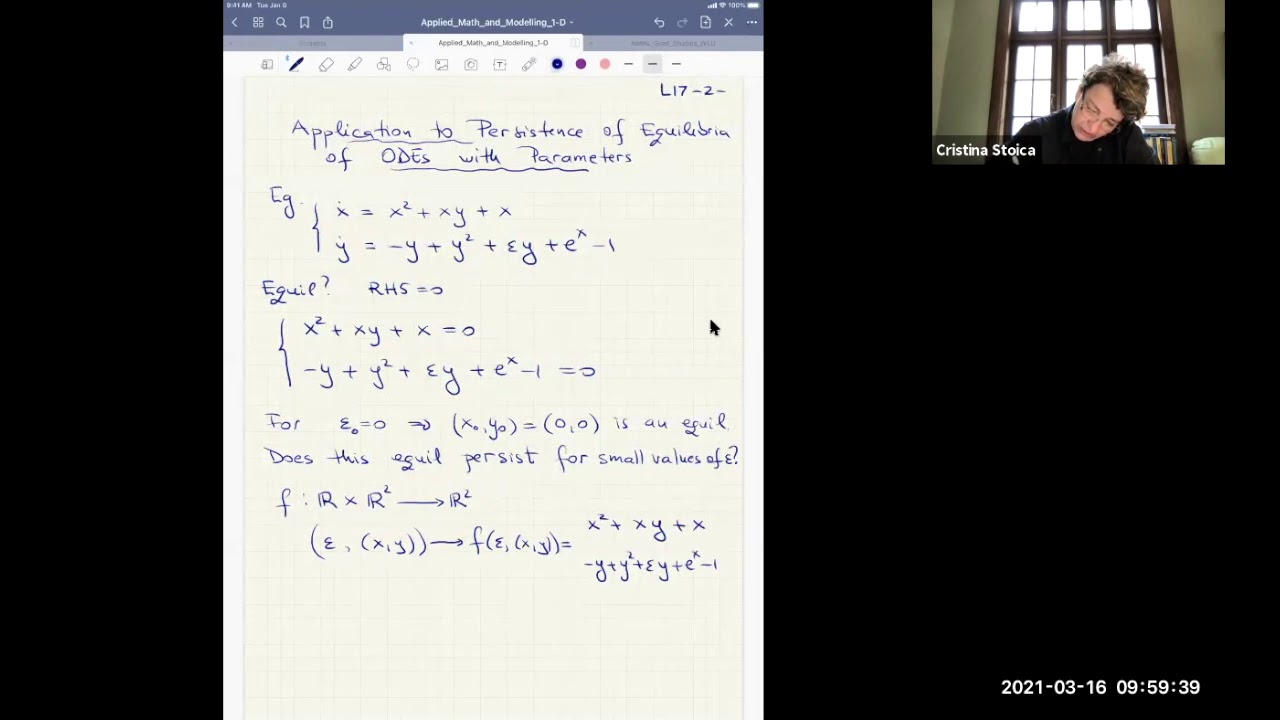 9:41 AM Tue Jan 9
100%
Applied_Math_and_Modelling_1-D
Applied_Math_and_Modelling_1-D
L17 -2-
Application to Persistence of Equilibria
of ODEs with Parameters
Eg. { ẋ = x² + xy + x
ẏ = -y + y² + εy + eˣ - 1
Equil? RHS = 0
{ x² + xy + x = 0
-y + y² + εy + eˣ - 1 = 0
For ε₀ = 0 ⇒ (x₀, y₀) = (0,0) is an equil.
Does this equil persist for small values of ε?
f : ℝ × ℝ² → ℝ²
(ε, (x,y)) → f(ε, (x,y)) = x² + xy + x
-y + y² + εy + eˣ - 1
Cristina Stoica
2021-03-16 09:59:39